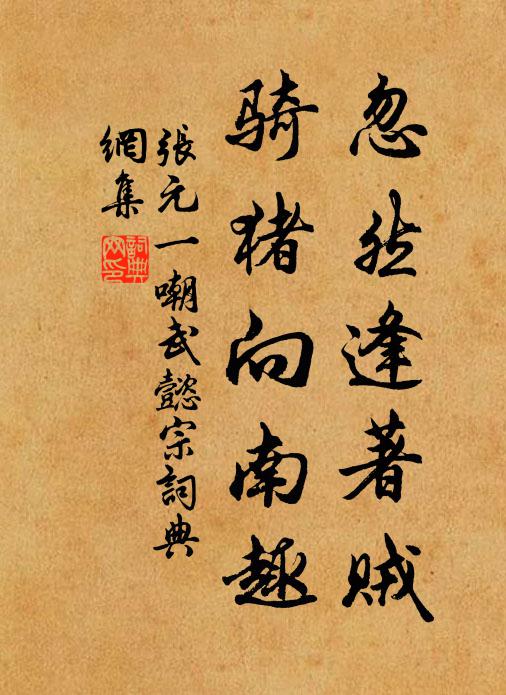 忽然逢著贼
骑猪向南趣
張元一嘲武懿宗詞典
網集
詞典
网印